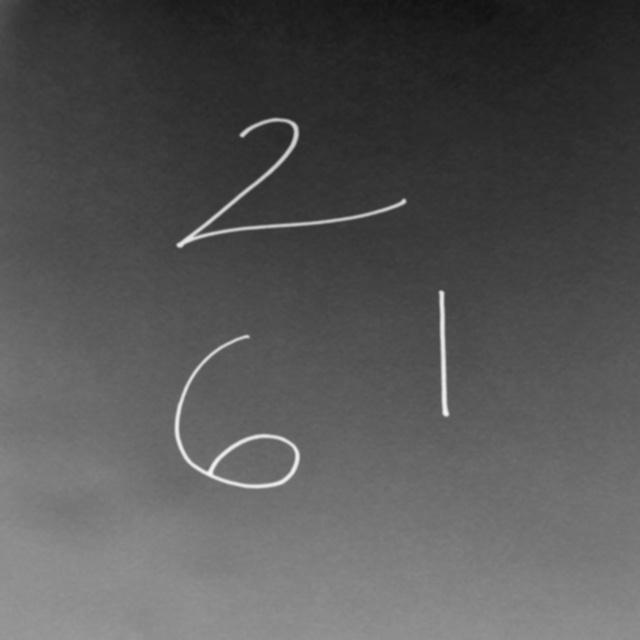 2
6 1